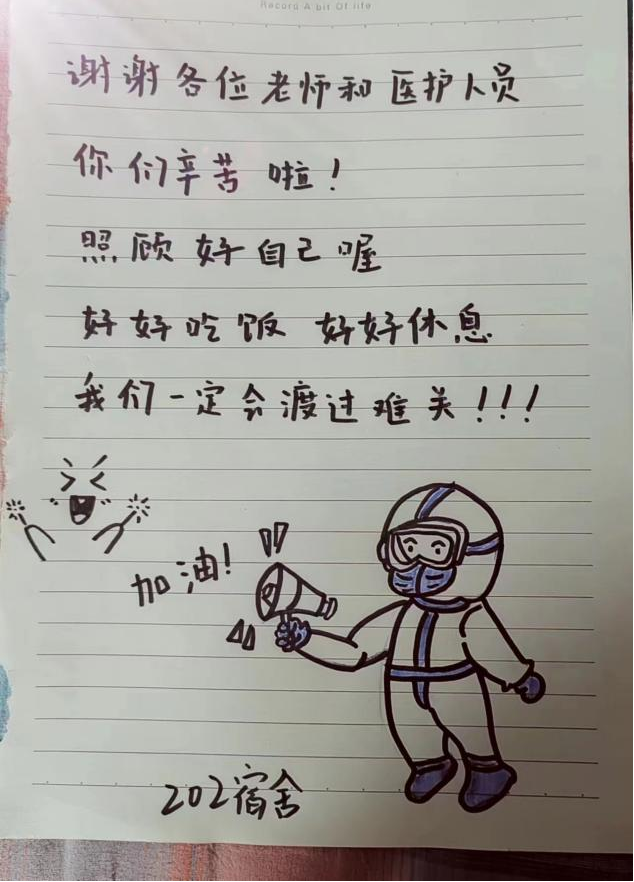 Record A bit Of life
谢谢各位老师和医护人员
你们辛苦啦!
照顾好自己喔
好好吃饭 好好休息
我们一定会渡过难关!!!
加油!
202宿舍